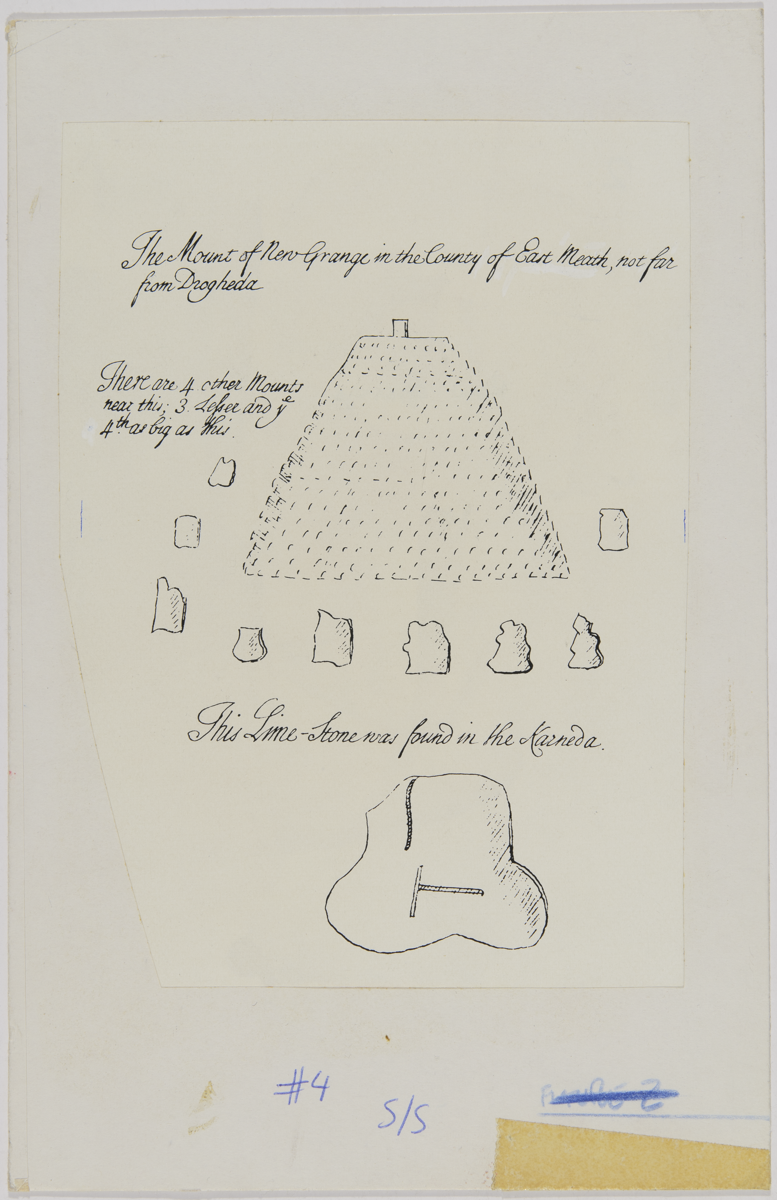 The Mount of New Grange in the County of East Meath, not far
from Drogheda
There are 4 other Mounts
near this; 3 Lesser and yᵉ
4ᵗʰ as big as this.
This Lime-Stone was found in the Karneda.
#4
S/S